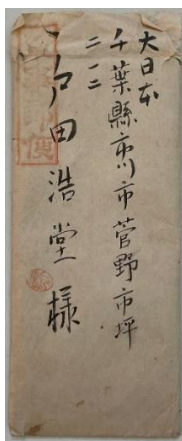 大日本
千葉縣市川市菅野市坪
二一二
戸田浩堂様